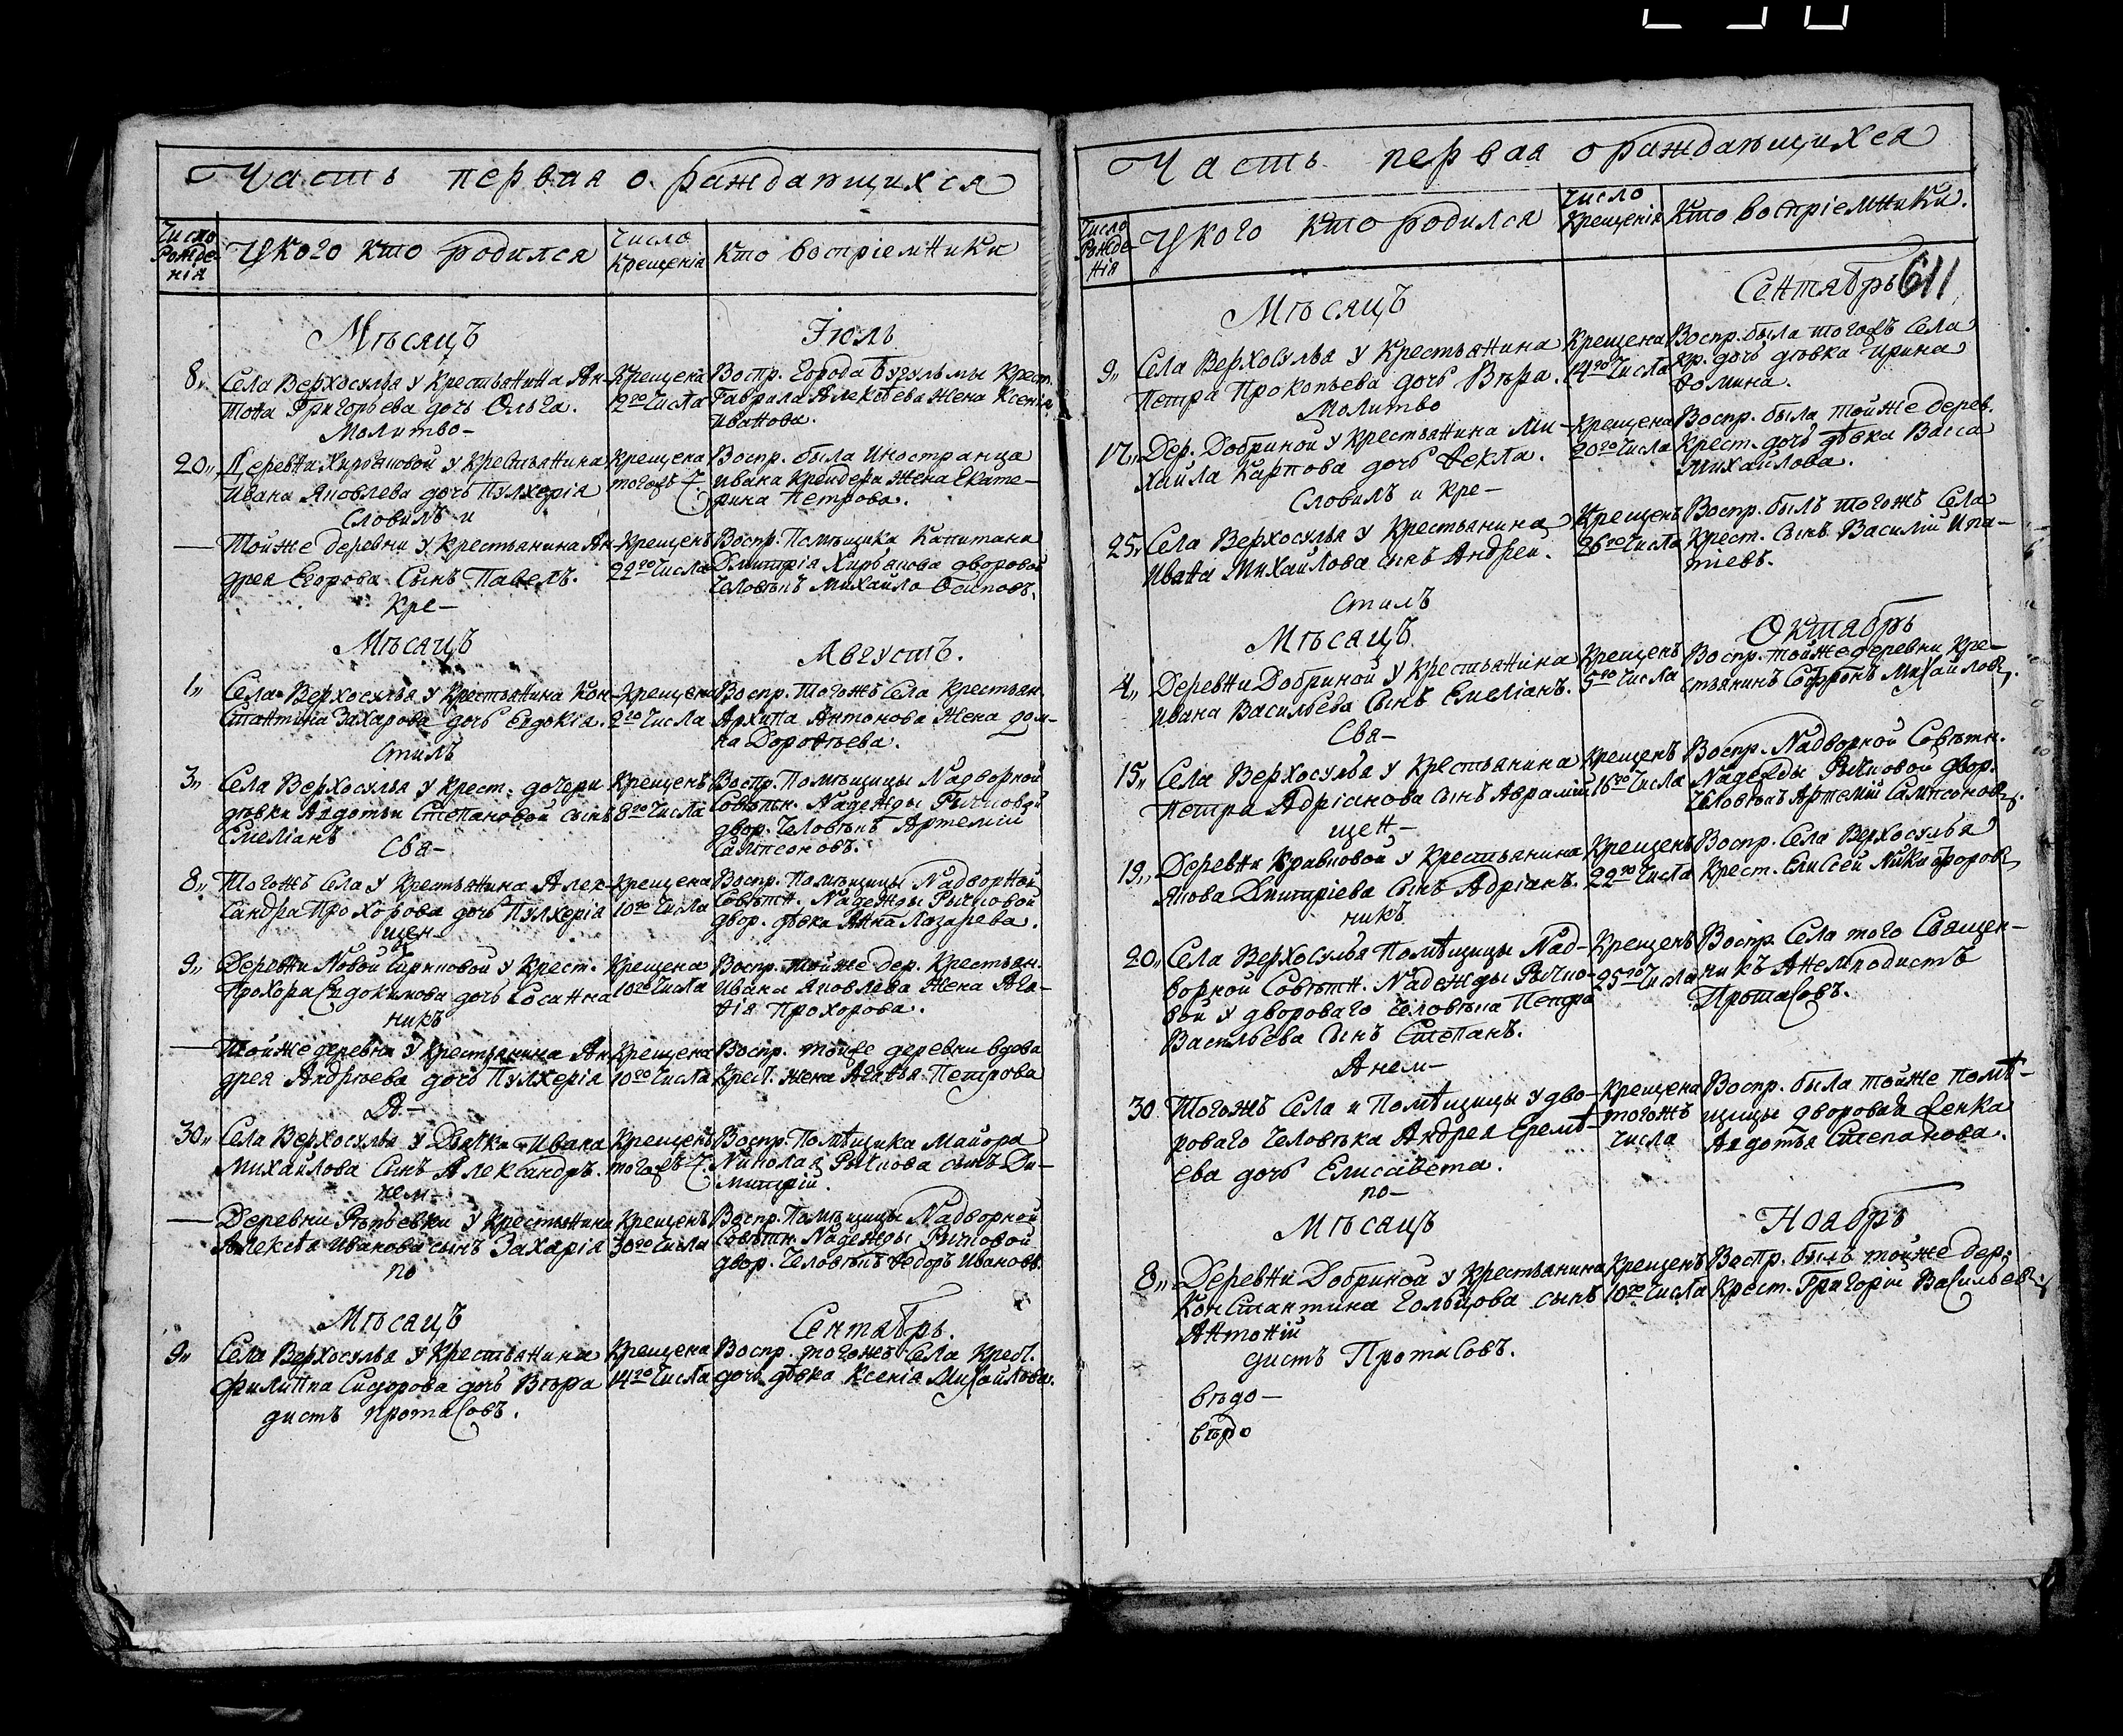 Часть первая о раждающихся
Число Рожденія
У кого кто родился
Число крещенія
кто воспріемники
Мѣсяцъ Іюль
8,, Села Верхосулья у Крестьянина Ан-
тона Григорьева дочь Ольга.
Молитво-
Крещена
12го Числа
Воспр. Города Бугульмы Крест.
Гаврила Алексѣева жена Ксенія
Иванова.
20,, Деревни Кирьяновой у Крестьянина
Ивана Яковлева дочь Пулхерія
Словилъ и
Крещена
тогожъ Ч.
Воспр. была Иностранца
Ивана Крейдера жена Екате-
рина Петрова.
— Тойже деревни у Крестьянина Ан-
дрея Егорова Сынъ Павелъ.
Кре-
Крещенъ
22го Числа
Воспр. Помѣщика Капитана
Дмитрія Кирьякова дворовой
Человѣкъ Михайло Осиповъ.
Мѣсяцъ Августъ.
1,, Села Верхосулья у Крестьянина Кон-
стантина Захарова дочь Евдокія.
Стилъ
Крещена
2го Числа
Воспр. Тогожъ Села Крестьян.
Архипа Антонова Жена дом-
на Дороѳѣева.
3,, Села Верхосулья у Крест. дочери
дѣвки Авдотьи Степановой сынъ
Емеліанъ
Свя-
Крещенъ
8го Числа
Воспр. Помѣщицы Надворной
Совѣтн. Надежды Рычковой
двор. Человѣкъ Артемій
Сампсоновъ.
8,, Тогожъ Села у Крестьянина Алек-
сандра Прохорова дочь Пулхерія
щен-
Крещена
10го Числа
Воспр. Помѣщицы Надворной
Совѣтн. Надежды Рычковой
двор. дѣвка Анна Лазарева.
9,, Деревни Новой у Крест.
Прохора Евдокимова дочь Сосанна
никъ
Крещена
10го Числа
Воспр. тойже дер. Крестьян.
Ивана Яковлева Жена Ага-
ѳія Прохорова.
— Тойже деревни у Крестьянина Ан-
дрея Андрѣева дочь Пулхерія
А-
Крещена
10го Числа
Воспр. тойже деревни вдова
Крест. жена Агаѳья Петрова
30,, Села Верхосулья у Дьячка Ивана
Михайлова Сынъ Александръ.
нем-
Крещенъ
тогожъ Ч.
Воспр. Помѣщика Майора
Николая Рычкова сынъ Ди-
митрій.
— Деревни Репьевки у Крестьянина
Алексѣя Иванова сынъ Захарія
по
Крещенъ
30го Числа
Воспр. Помѣщицы Надворной
Совѣтн. Надежды Рычковой
двор. Человѣкъ Ѳедоръ Ивановъ.
Мѣсяцъ Сентябрь.
9,, Села Верхосулья у Крестьянина
Филиппа Сидорова дочь Вѣра
дистъ Протасовъ.
Крещена
14го Числа
Воспр. тогожъ Села Крест.
дочь дѣвка Ксенія Михайлова.
Часть первая о раждающихся
Число Рожденія
У кого кто родился
Число Крещенія
Кто воспріемники.
Мѣсяцъ Сентябрь
611
9,, Села Верхосулья у Крестьянина
Петра Прокопьева дочь Вѣра.
Молитво
Крещена
14го Числа
Воспр. была тогожъ Села
кр. дочь дѣвка Ирина
Ѳомина.
17,, Дер. Добриной у Крестьянина Ми-
хайла Карпова дочь Ѳекла.
Словилъ и Кре-
Крещена
20го Числа
Воспр. была тойже дерев.
Крест. дочь дѣвка Васса
Михайлова.
25,, Села Верхосулья у Крестьянина
Ивана Михайлова сынъ Андрей.
Стилъ
Крещенъ
26го Числа
Воспр. былъ тогожъ Села
Крест. Сынъ Василій Ипа-
тіевъ.
Мѣсяцъ Октябрь
4,, Деревни Добриной у Крестьянина
Ивана Васильева Сынъ Емеліанъ.
Свя-
Крещенъ
5го Числа
Воспр. тойже деревни Кре-
стьянинъ Софронъ Михайловъ.
15,, Села Верхосулья у Крестьянина
Петра Адріанова Сынъ Аврамій
щен-
Крещенъ
16го Числа
Воспр. Надворной Совѣтн.
Надежды Рычковой двор.
Человѣкъ Артемій Сампсоновъ.
19,, Деревни Кравковой у Крестьянина
Якова Дмитріева Сынъ Адріанъ.
никъ
Крещенъ
22го Числа
Воспр. Села Верхосулья
Крест. Елисей Никифоровъ
20,, Села Верхосулья Помѣщицы Над-
ворной Совѣтн. Надежды Рычко-
вой у двороваго Человѣка Петра
Васильева Сынъ Степанъ.
Анем-
Крещенъ
25го Числа
Воспр. Села того Священ-
никъ Анемподистъ
Протасовъ.
30 Тогожъ Села и Помѣщицы у дво-
роваго Человѣка Андрея Еремѣ-
ева дочь Елисавета.
по-
Крещена
тогожъ
числа
Воспр. была тойже помѣ-
щицы дворовая девка
Авдотья Степанова.
Мѣсяцъ Ноябрь
8,, Деревни Добриной у Крестьянина
Константина Гольцова сынъ
Антоній
дистъ Протасовъ.
Крещенъ
10го Числа
Воспр. былъ тойже дер.
Крест. Григорій Васильевъ
вѣдо-
вѣдо